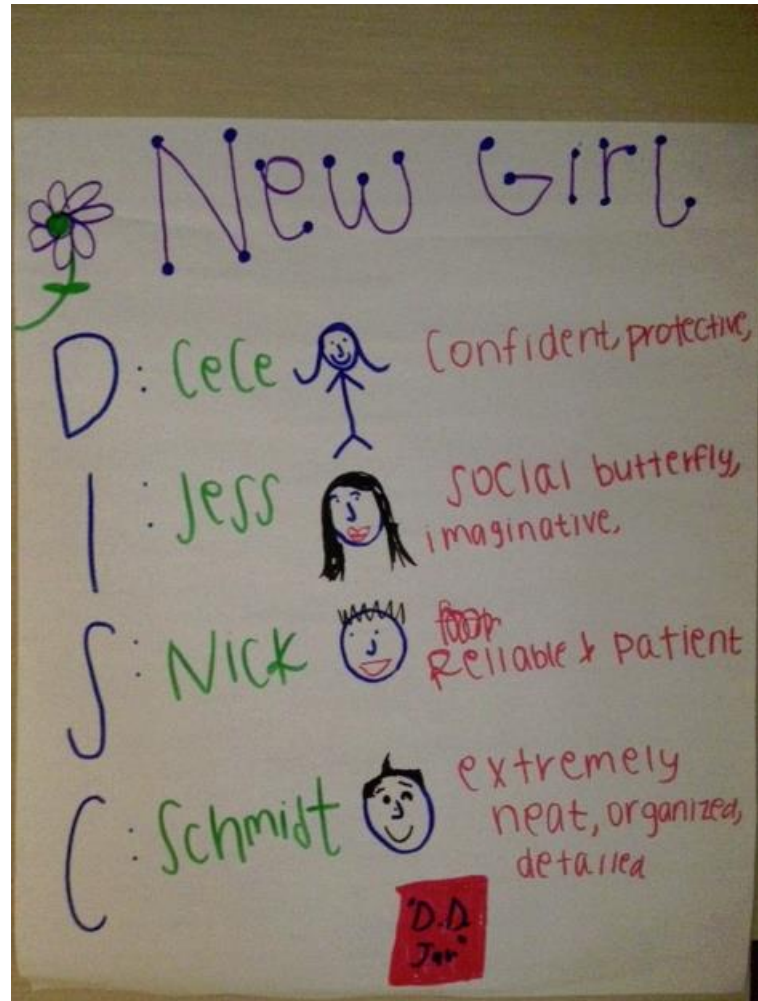 New Girl
D: CeCe Confident, protective,
I: Jess social butterfly,
imaginative,
S: Nick
Reliable & patient
C: Schmidt extremely
neat, organized,
detailed
"D.D.
Jar"